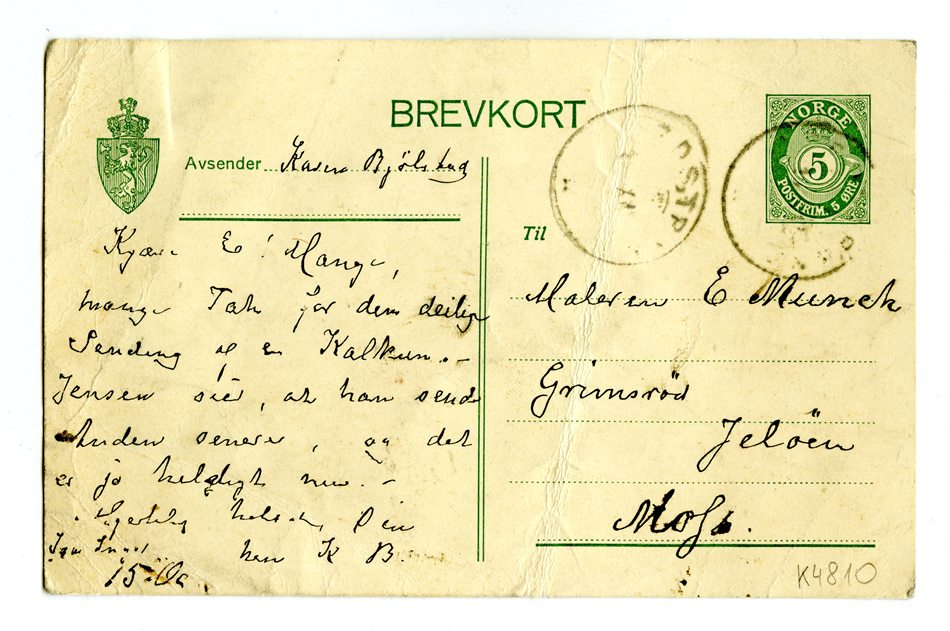 BREVKORT
Avsender Karen Bjölstad
Kjære E! Mange,
mange Tak for den deilige
Sending af en Kalkun. –
Jensen sier, at han sende
Anden senere, og det
er jo heldigt
Hjertelig hilsen, Din
hen K B.
15 Oc
NORGE
5
POSTFRIM. 5 ØRE
Til
Maleren E Munch
Grimsröd
Jelöen
Moss.
K4810